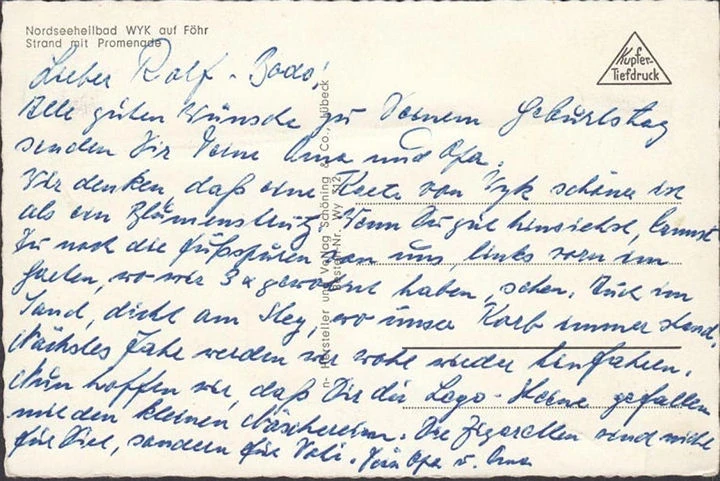 Nordseeheilbad WYK auf Föhr
Strand mit Promenade
Kupfer-
Tiefdruck
Lieber Rolf-Bodo!
Alle guten Wünsche zu Deinem Geburtstag
senden Dir Deine Oma und Opa.
Wir denken, daß eine Karte von Wyk schöner ist
als ein Blumenstrauß. Wenn Du gut hinsiehst, kannst
Du noch die Fußspuren von uns, links vorn im
Garten, wo wir 3x gewohnt haben, sehen. Auch im
Sand, dicht am Steg, wo unser Korb immer stand.
Nächstes Jahr werden wir wohl wieder hinfahren.
Nun hoffen wir, daß Dir die Lego-Steine gefallen
mit den kleinen Näschereien. Die Zigaretten sind nicht
für Dich, sondern für Vati. Dein Opa u. Oma
Hersteller und Verlag Schöning & Co., Lübeck
Bestell-Nr. Wy 312